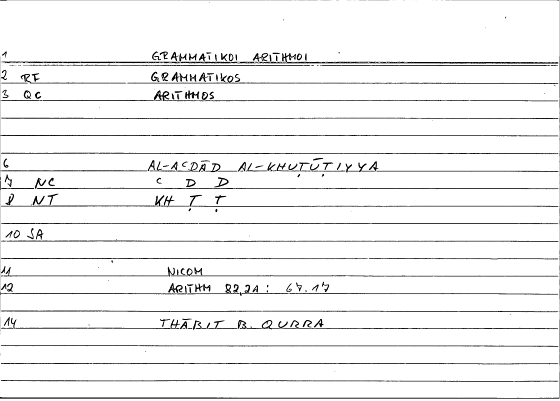 1 GRAMMATIKOI ARITHMOI
2 RF GRAMMATIKOS
3 QC ARITHMOS
6 AL-AᶜDĀD AL-KHUṬŪṬIYYA
7 NC ᶜ D D
8 NT KH Ṭ Ṭ
10 SA
11 NICOM
12 ARITHM 82,21: 67.17
14 THĀBIT B. QURRA